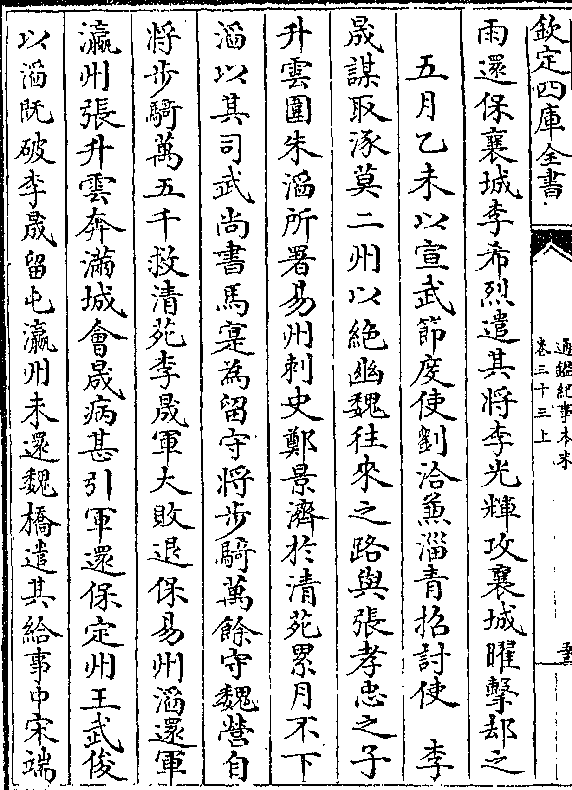 欽定四庫全書
通鑑紀事本末
卷三十三上
雨還保襄城李希烈遣其將李光輝攻襄城曜擊却之
五月乙未以宣武節度使劉洽兼淄青招討使 李
晟謀取涿莫二州以絶幽魏往來之路與張孝忠之子
升雲圍朱滔所署易州刺史鄭景濟於清苑累月不下
滔以其司武尚書馬寔為留守將步騎萬餘守魏營自
將步騎萬五千救清苑李晟軍大敗退保易州滔還軍
瀛州張升雲奔滿城會晟病甚引軍還保定州王武俊
以滔既破李晟留屯瀛州未還魏橋遣其給事中宋端